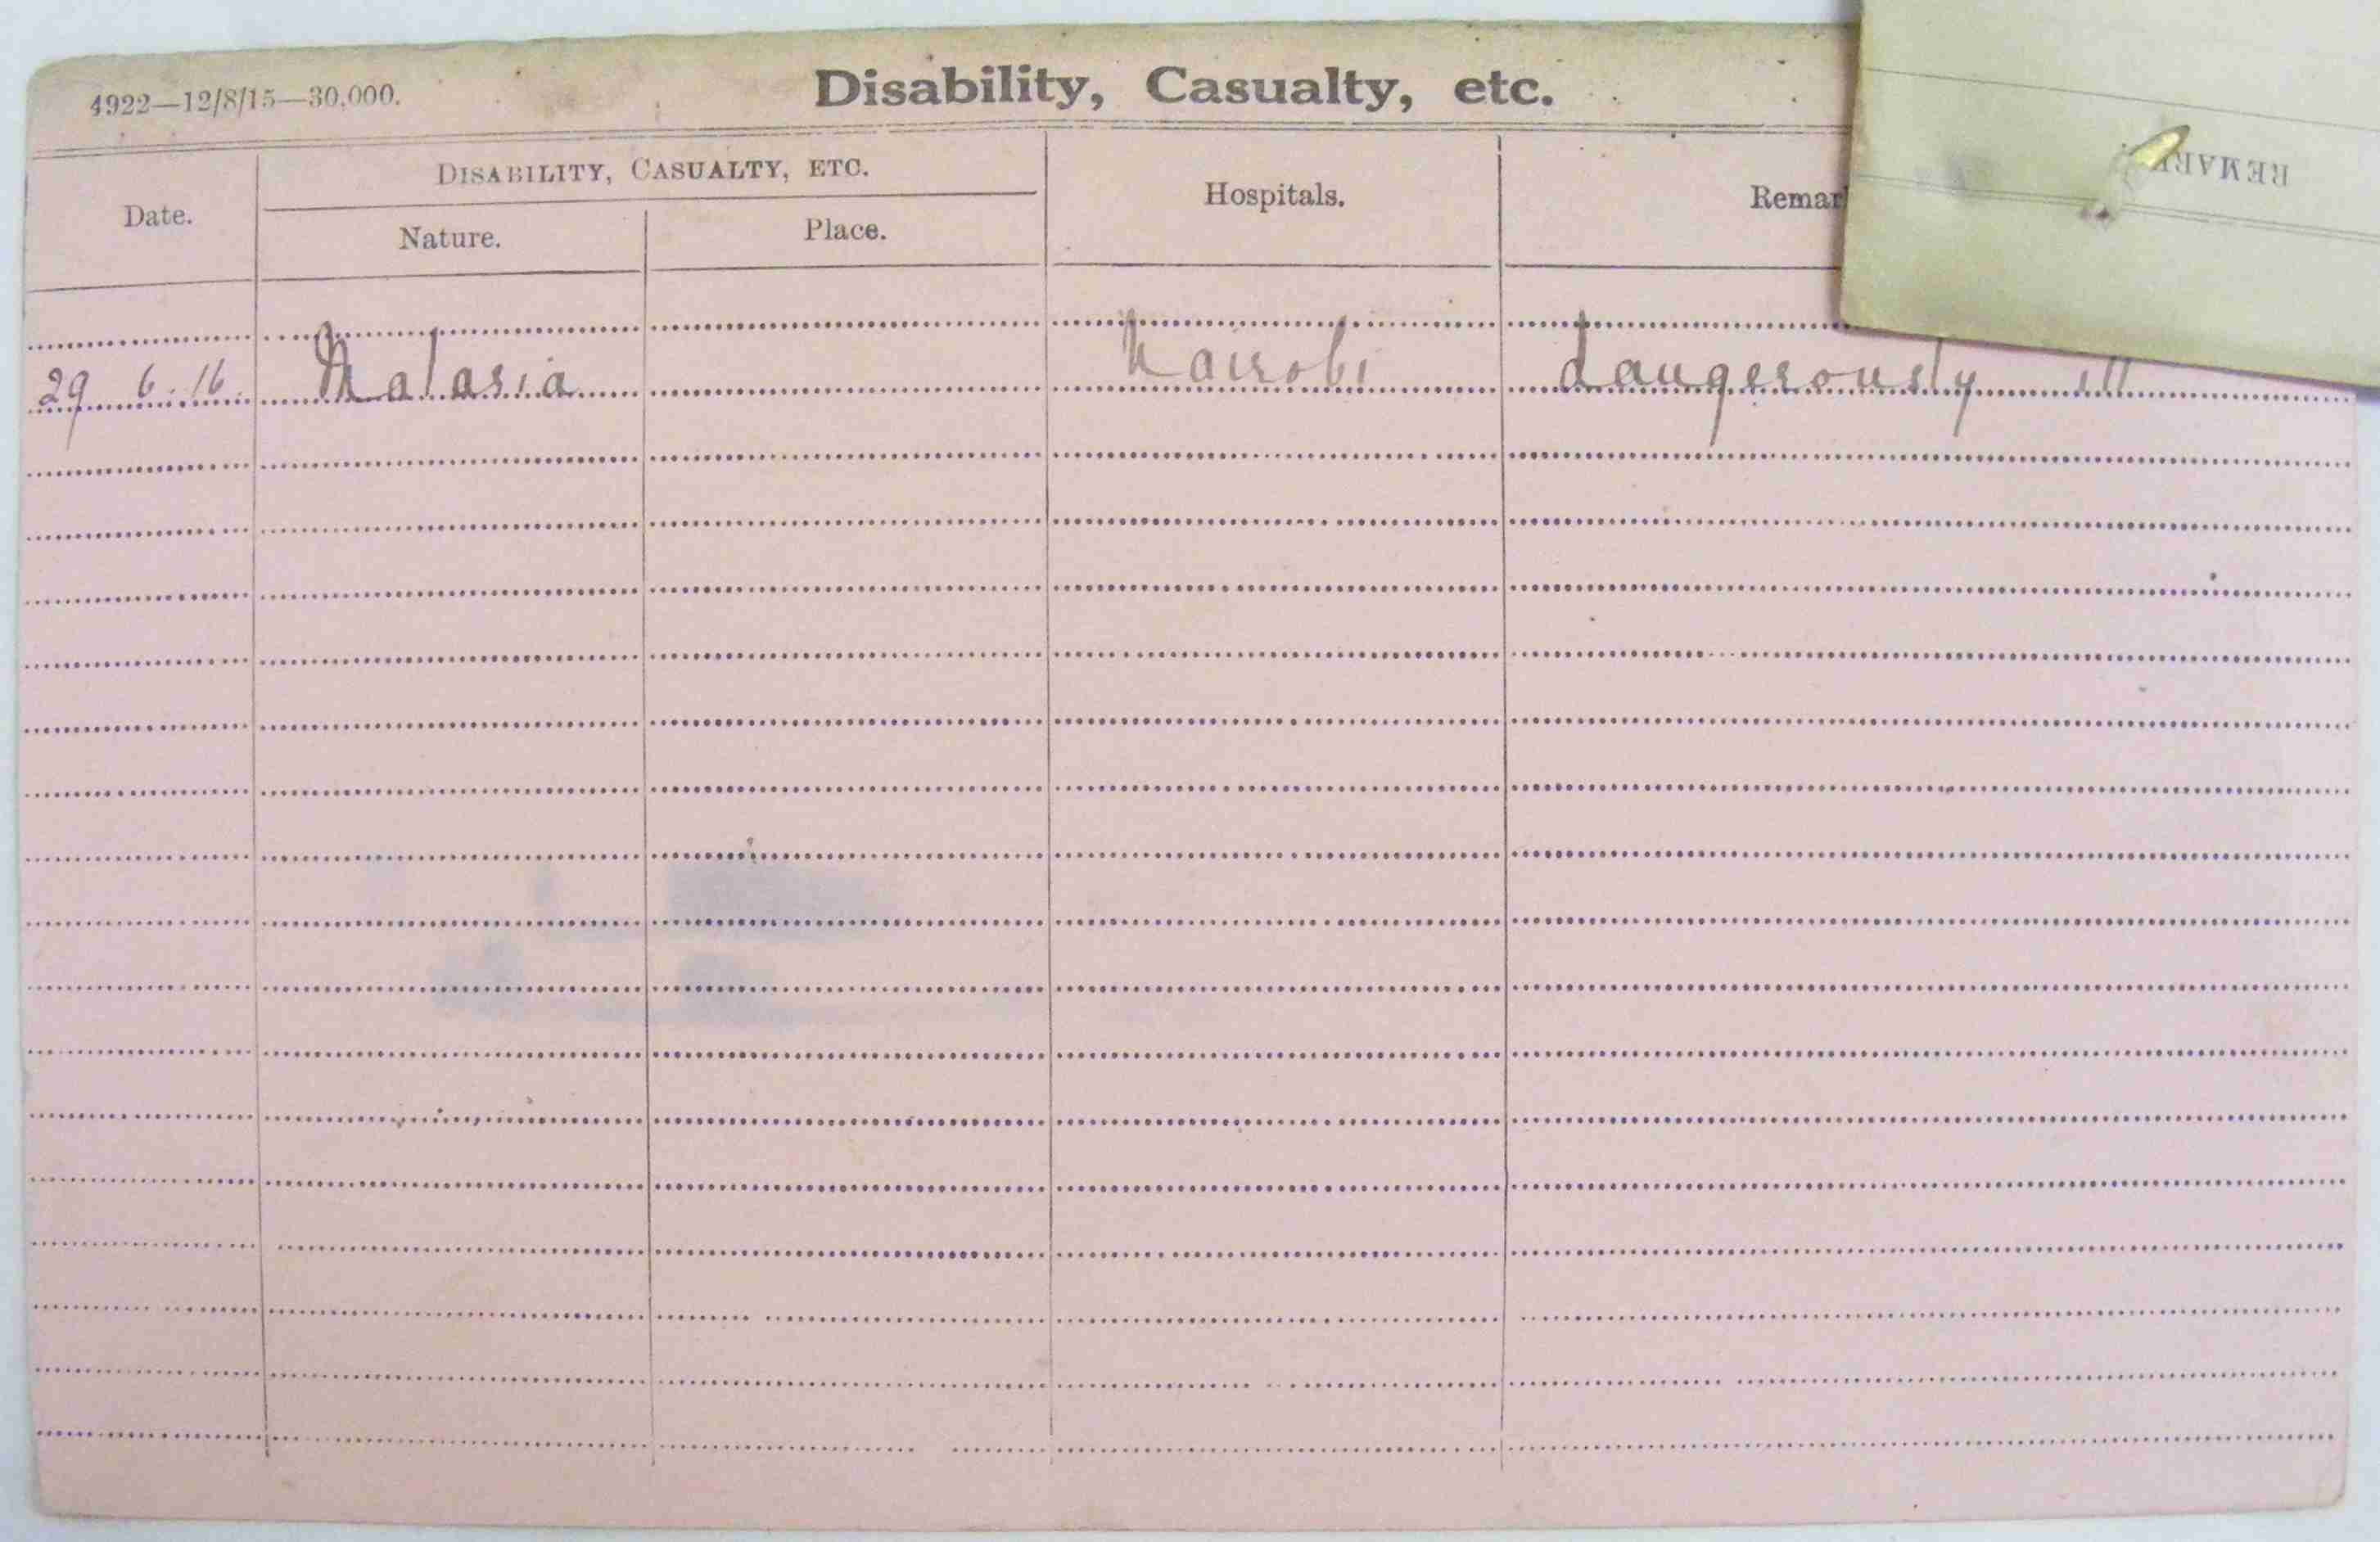 4922—12/8/15—30,000.
Disability, Casualty, etc.
Date.
DISABILITY, CASUALTY, ETC.
Nature.
Place.
Hospitals.
Remar
REMARK
29 6.16. Malaria Nairobi dangerously ill